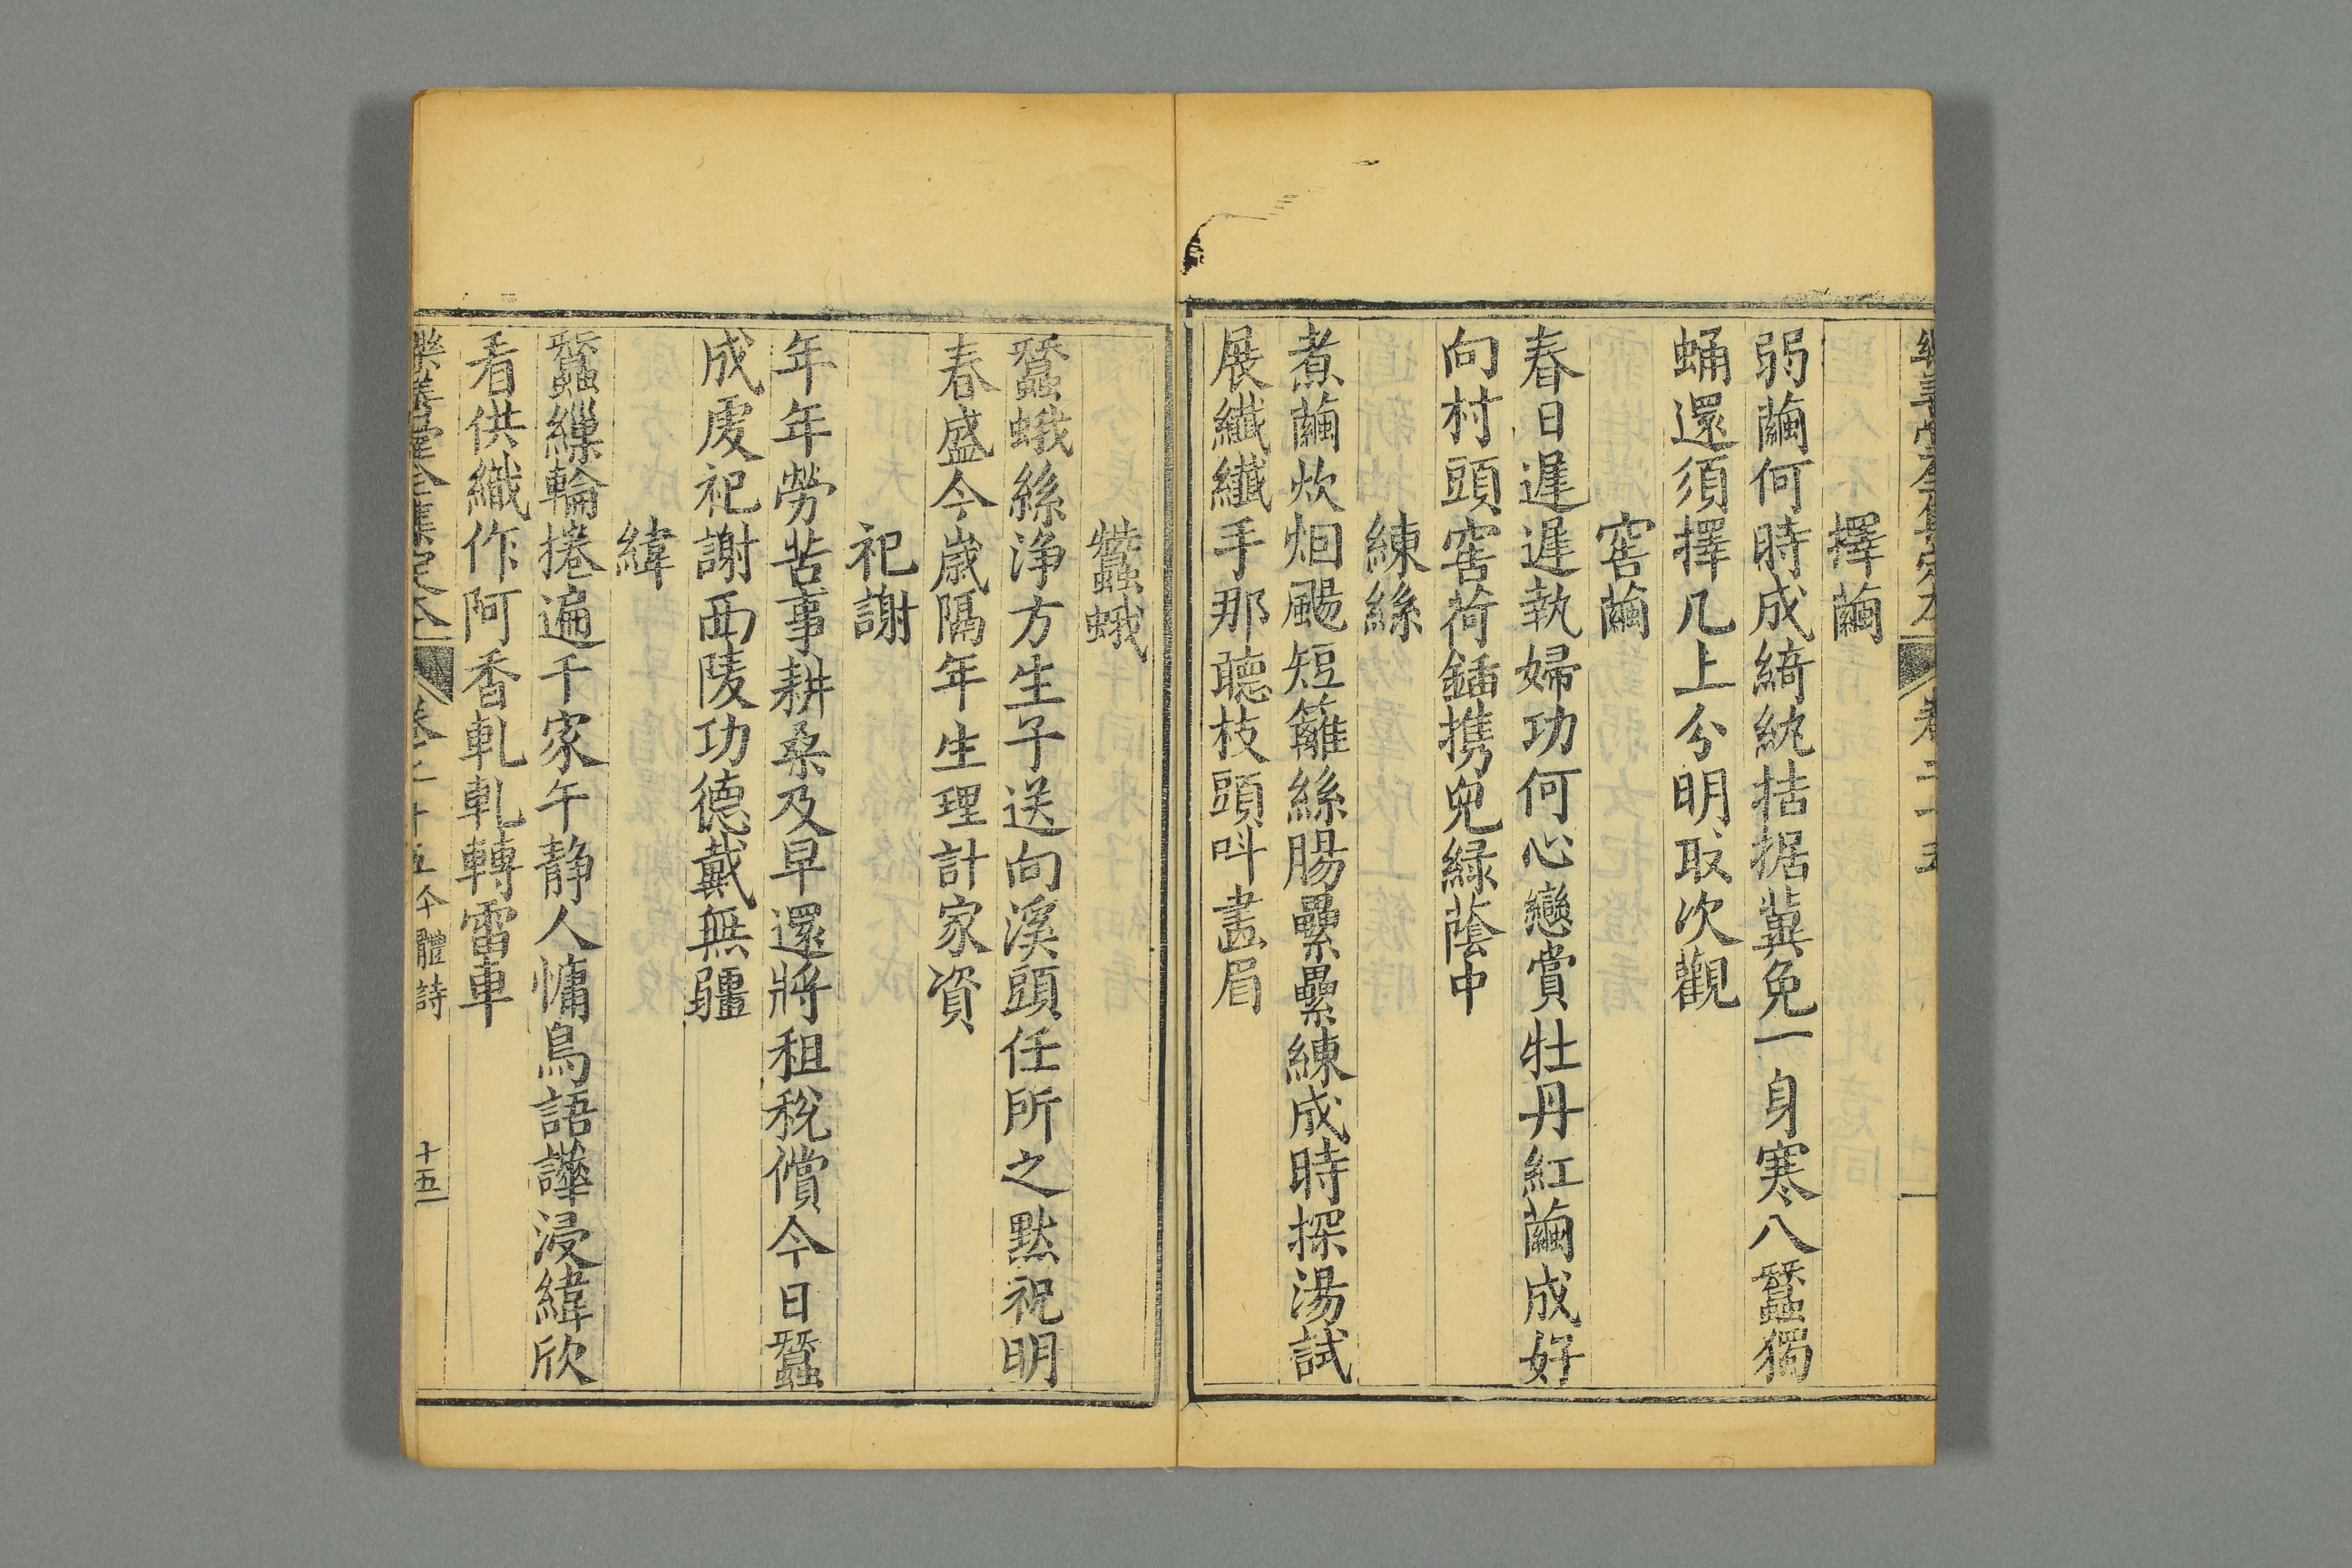 樂善堂全集定本 卷二十五
擇繭
弱繭何時成綺紈拮据冀免一身寒八蠶獨
蛹還須擇几上分明取次觀
窖繭
春日遲遲執婦功何心戀賞牡丹紅繭成好
向村頭窖荷鍤携兜緑蔭中
練絲
煮繭炊烟颺短籬絲腸纍纍練成時探湯試
展纖纖手那聽枝頭呌畫眉
蠶蛾
蠶蛾絲浄方生子送向溪頭任所之黙祝明
春盛今歲隔年生理計家資
祀謝
年年勞苦事耕桑及早還將租稅償今日蠶
成䖏祀謝西陵功德戴無疆
緯
蠶繅輪捲遍千家午静人慵鳥語譁浸緯欣
看供織作阿香軋軋轉雷車
樂善堂全集定本 卷二十五今體詩 十五